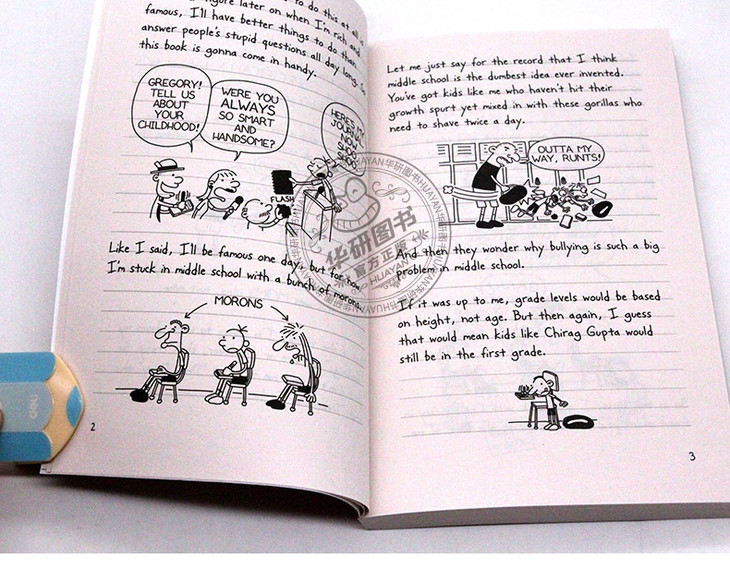 to do this at all
figure later on when I'm rich and
famous, I'll have better things to do than
answer people's stupid questions all day long. So
this book is gonna come in handy.
GREGORY!
TELL US
ABOUT
YOUR
CHILDHOOD!
WERE YOU
ALWAYS
SO SMART
AND
HANDSOME?
HERE'S MY
JOURNAL.
NOW
SHOO,
SHOO.
FLASH
Like I said, I'll be famous one day, but for now
I'm stuck in middle school with a bunch of morons.
MORONS
2
Let me just say for the record that I think
middle school is the dumbest idea ever invented.
You've got kids like me who haven't hit their
growth spurt yet mixed in with these gorillas who
need to shave twice a day.
OUTTA MY
WAY, RUNTS!
And then they wonder why bullying is such a big
problem in middle school.
If it was up to me, grade levels would be based
on height, not age. But then again, I guess
that would mean kids like Chirag Gupta would
still be in the first grade.
3
HUAYAN华研图书HUAYAN
华研图书
官方正版
HUAYAN
deli